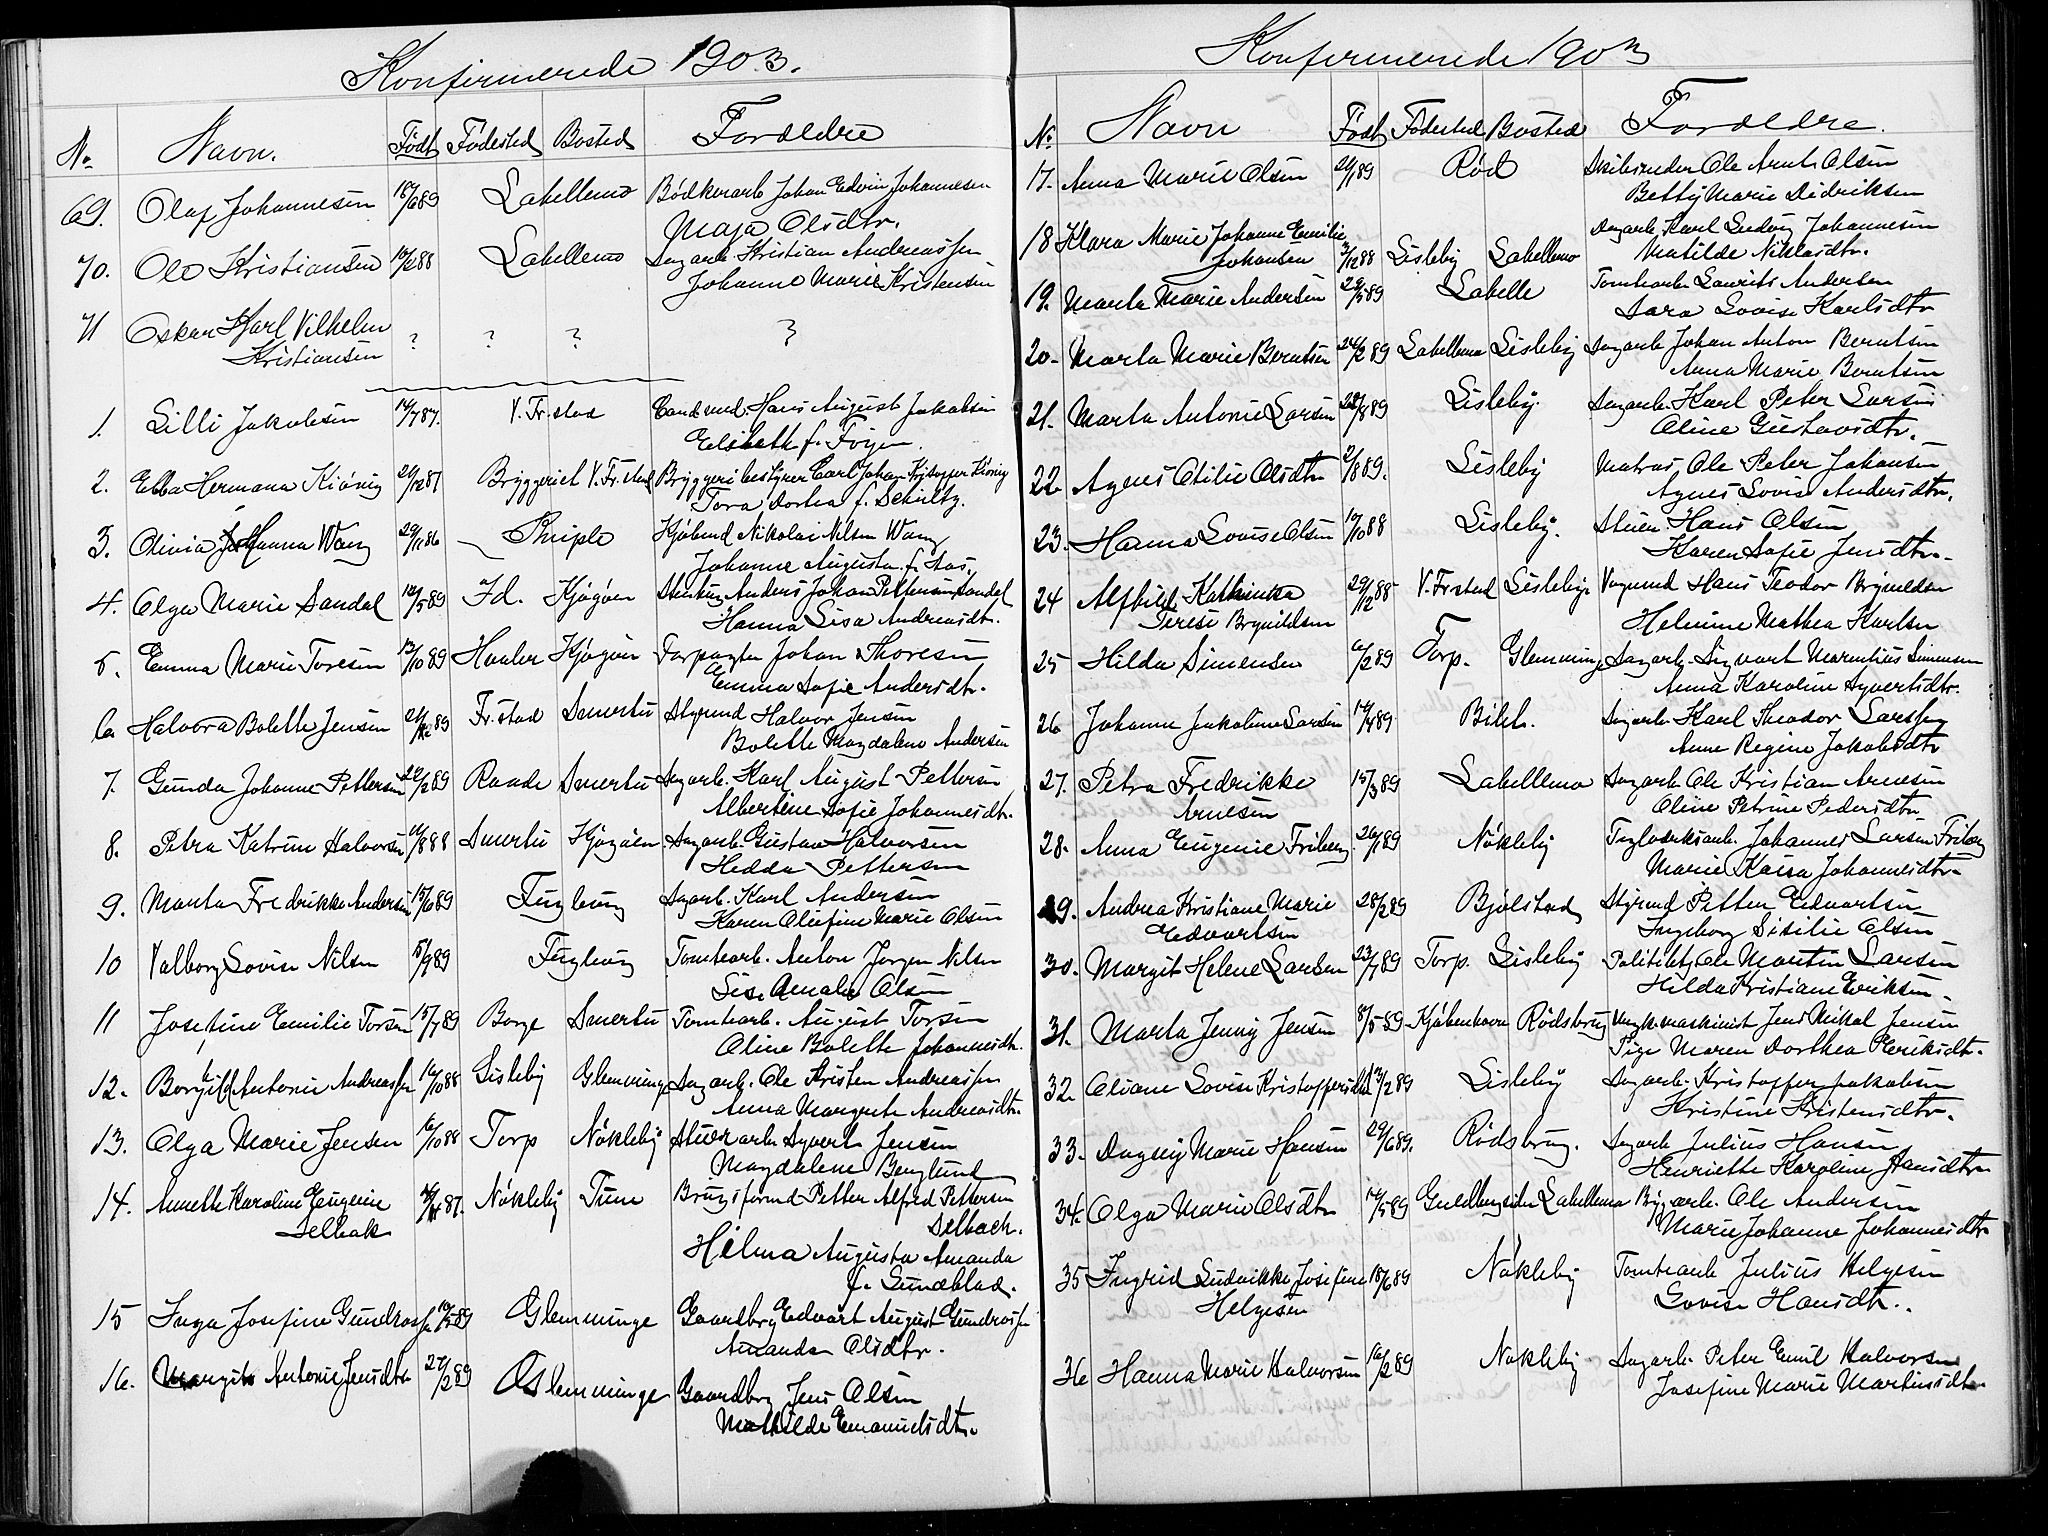 Konfirmerede 1903.
No. Navn. Født Fødested Bosted Forældre
69. Olaf Johannesen 18/6 89 Labellemo Bødkerarb Johan Edvin Johannesen
Maja Olsdtr.
70. Ole Kristiansen Labellemo Dagarb. Kristian Andreassen
Johanne Marie Kristensen
71 Oskar Karl Vilhelm ? ? ? ?
Kristiansen
1. Lilli Jakobsen 14/7 87. V. Fr.stad Cand med. Hans August Jakobsen
Elisbeth f. Foyn.
2. Ebba Hermana Kiønig 20/12 87 Bryggeriet V. Fr. stad Bryggeribestyrer Carl Johan Kristoffer Kiønig
Tora Dortea f. Schultz.
3. Olivia Johanna Wang 29/11 86 Kjøbmd Nikolai Nilsen Wang
Johanne Augusta f.
4. Olga Marie Sandal 12/5 89 Id. Kjøgøen Anders Johan Pettersen Sandal
Hanna Lisa Andreasdtr.
5. Emma Marie Toresen 13/10 89 Hvaler Kjøgøen Forpagter Johan Thoresen
Emma Sofie Andersdtr.
6 Halvora Bolette Jensen Fr. stad Smertu Styrmd Halvor Jensen
Bolette Magdalene Andersen
7. Gunda Johanne Pettersen 22/2 89 Raade Smertu Dagarb. Karl August Pettersen
Albertine Sofie Johannesdtr.
8. Petra Katrine Halvorsen Smertu Kjøgøen Dagarb. Gustav Halvorsen
Hedda Pettersen
9. Marta Fredrikke Andersen 15/6 89 Fuglevig Dagarb. Karl Andersen
Karen Olufine Marie Olsen
10 Valborg Lovise Nilsen 5/9 89 Fuglevig Tomtearb. Anton Jørgen Nilsen
Lise Amalie Olsen
11 Josefine Emilie Torsen 15/7 89 Borge Smertu Tomtearb. August Torsen
Oline Bolette Johannesdtr.
12. Borgild Antonie Andreassen 16/10 88 Lisleby Glemminge Dagarb. Ole Kristen Andreassen
Anna Margrete Andreasdtr.
13. Olga Marie Jensen 16/10 88 Torp Nøkleby Stuerarb Syvert Jensen
Magdalene Benglund
14. Annette Karoline Eugenie Nøkleby Tune Brugsformd Petter Alfred Pettersen
Selbak Selbach.
Hilma Augusta Amanda
f. Sundblad.
15 Inga Josefine Gundrosen Glemminge Gaardbrg Edvart August Gundrosen
Amanda Olsdtr.
16. Margit Antonie Jensdtr 27/2 89 Glemminge Gaardbrg Jens Olsen
Mathilde Emanuelsdtr.
Konfirmerede 1903
No. Navn Født Fødested Bosted Forældre.
17. Anna Marie Olsen 24/1 89 Rød Skibsreder Ole Arnt Olsen
Betty Marie Didriksen
18 Klara Marie Johanne Emilie Dagarb. Karl Ludvig Johannesen
Johansen 3/12 88 Lisleby Labellemo Matilde Niklasdtr.
19. Marta Marie Andersen 29/5 89 Labelle Tomtearb Laurits Andersen
Sara Lovise Karlsdtr
20. Marta Marie Berntsen 24/2 89 Labellemo Lisleby Dagarb Johan Anton Berntsen
Anna Marie Berntsen
21. Marta Antonie Larsen 28/8 89 Lisleby. Dagarb. Karl Peter Larsen
Oline Gustavsdtr.
22. Agnes Otilie Olsdtr 2/8 89. Lisleby Matros Ole Peter Johansen
Agnes Lovise Andersdtr.
23. Hanna Lovise Olsen 10/10 88 Lisleby. Stuer. Hans Olsen
Karen Sofie Jensdtr.
24 Alfhild Kathinka 29/12 88 V. Frstad Lisleby. Vognmd Hans Teodor Brynildsen
Terese Brynildsen Helmine Mathea Karlsen
25 Hilda Simensen 6/2 89 Torp. Glemminge Dagarb. Sigvart Marentius Simensen
Anna Karoline Syvertsdtr.
26 Johanne Jakobine Larsen 14/4 89 Dagarb. Karl Theodor Larssen
Anne Regine Jakobsdtr
27. Petra Fredrikke 15/3 89 Labellemo Dagarb Ole Kristian Arnesen
Arnesen Oline Petrine Pedersdtr.
28. Anna Eugenie Friberg. 26/1 89 Nøkleby Teglverksarb. Johannes Larsen Friberg
Marie Kaisa Johannesdtr.
29. Andrea Kristiane Marie 28/2 89 Bjølstad Styrmd Petter Edvartsen
Edvartsen Ingeborg Sisilie Olsen
30. Margit Helene Larsen 23/7 89 Torp. Lisleby Politibtj. Ole Martin Larsen
Hilda Kristiane Eriksen.
31. Marta Jenny Jensen 8/5 89 Kjøbenhavn Rødsbrug Jens Mikal Jensen
Pige Maren Dorthea Eriksdtr.
32. Oliane Lovise Kristoffersdtr 13/2 89 Lisleby Dagarb. Kristoffer Jakobsen
Kristine Kristensdtr.
33. Dagny Marie Hansen 29/6 89. Rødsbrug. Dagarb Julius Hansen
Henriette Karoline Hansdtr
34. Olga Marie Olsdtr 14/5 89 Guldbergsiden Labellemo Byggarb. Ole Andersen
Marie Johanne Johannesdtr
35 Ingrid Ludvikke Josefine 18/6 89 Nøkleby Tomtearb Julius Helgesen
Helgesen Lovise Hansdtr.
36 Hanna Marie Halvorsen 16/2 89 Nøkleby Dagarb. Peter Emil Halvorsen
Josefine Marie Martinsdtr